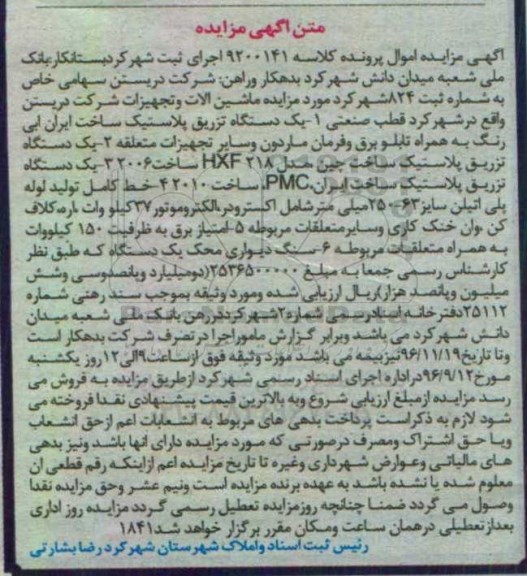 متن آگهی مزایده
آگهی مزایده اموال پرونده کلاسه ۹۲۰۰۱۴۱ اجرای ثبت شهرکردبستانکار:بانک
ملی شعبه میدان دانش شهرکرد بدهکار وراهن: شرکت دریستن سهامی خاص
به شماره ثبت ۸۲۴شهرکرد مورد مزایده ماشین الات وتجهیزات شرکت دریستن
واقع درشهرکرد قطب صنعتی ۱-یک دستگاه تزریق پلاستیک ساخت ایران ابی
رنگ به همراه تابلو برق وفرمان ماردون وسایر تجهیزات متعلقه ۲-یک دستگاه
تزریق پلاستیک ساخت چین مدل HXF ۲۱۸ ساخت۲۰۰۶ ۳-یک دستگاه
تزریق پلاستیک ساخت ایران،PMC، ساخت ۲۰۱۰ ۴-خط کامل تولید لوله
پلی اتیلن سایز۶۳-۲۵۰میلی مترشامل اکسترودر،الکتروموتور۳۷کیلو وات ،اره،کلاف
کن ،وان خنک کاری وسایرمتعلقات مربوطه ۵-امتیاز برق به ظرفیت ۱۵۰ کیلووات
به همراه متعلقات مربوطه ۶-سنگ دیواری محک یک دستگاه که طبق نظر
کارشناس رسمی جمعا به مبلغ ۲۵۳۶۵۰۰۰۰۰(دومیلیارد وپانصدوسی وشش
میلیون وپانصد هزار)ریال ارزیابی شده ومورد وثیقه بموجب سند رهنی شماره
۲۵۱۱۲دفترخانه اسنادرسمی شماره۲شهرکرددررهن بانک ملی شعبه میدان
دانش شهرکرد می باشد وبرابر گزارش ماموراجرا درتصرف شرکت بدهکار است
وتا تاریخ۹۶/۱۱/۱۹نیزبیمه می باشد مورد وثیقه فوق ازساعت۹الی۱۲روز یکشنبه
مورخ۹۶/۹/۱۲دراداره اجرای اسناد رسمی شهرکرد ازطریق مزایده به فروش می
رسد مزایده ازمبلغ ارزیابی شروع وبه بالاترین قیمت پیشنهادی نقدا فروخته می
شود لازم به ذکراست پرداخت بدهی های مربوط به انشعابات اعم ازحق انشعاب
ویا حق اشتراک ومصرف درصورتی که مورد مزایده دارای انها باشد ونیز بدهی
های مالیاتی وعوارض شهرداری وغیره تا تاریخ مزایده اعم ازاینکه رقم قطعی ان
معلوم شده یا نشده باشد به عهده برنده مزایده است ونیم عشر وحق مزایده نقدا
وصول می گردد ضمنا چنانچه روزمزایده تعطیل رسمی گردد مزایده روز اداری
بعدازتعطیلی درهمان ساعت ومکان مقرر برگزار خواهد شد۱۸۴۱
رئیس ثبت اسناد واملاک شهرستان شهرکرد رضا بشارتی